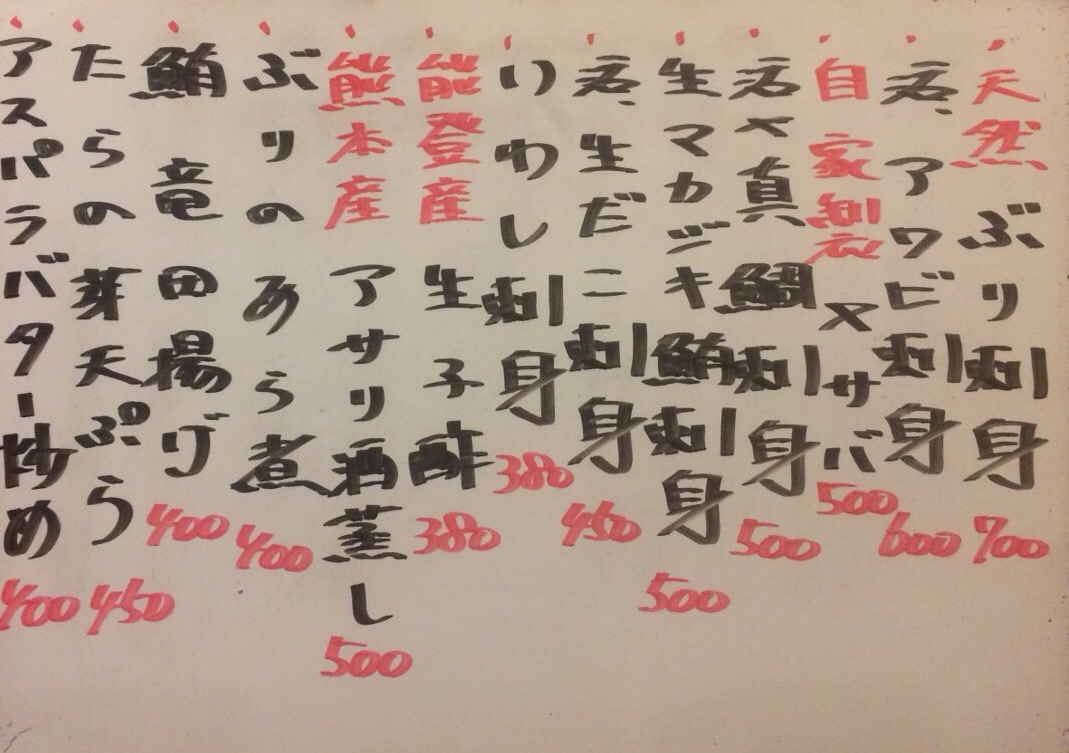 天然ぶり刺身 700
活、アワビ刺身 600
自家製〆サバ 500
活〆真鯛刺身 500
生マカジキ鮪刺身 500
活、生だこ刺身 450
いわし刺身 380
能登産生子酢 380
熊本産アサリ酒蒸し 500
ぶりのあら煮 400
鮪竜田揚げ 400
たらの芽天ぷら 450
アスパラバター炒め 400